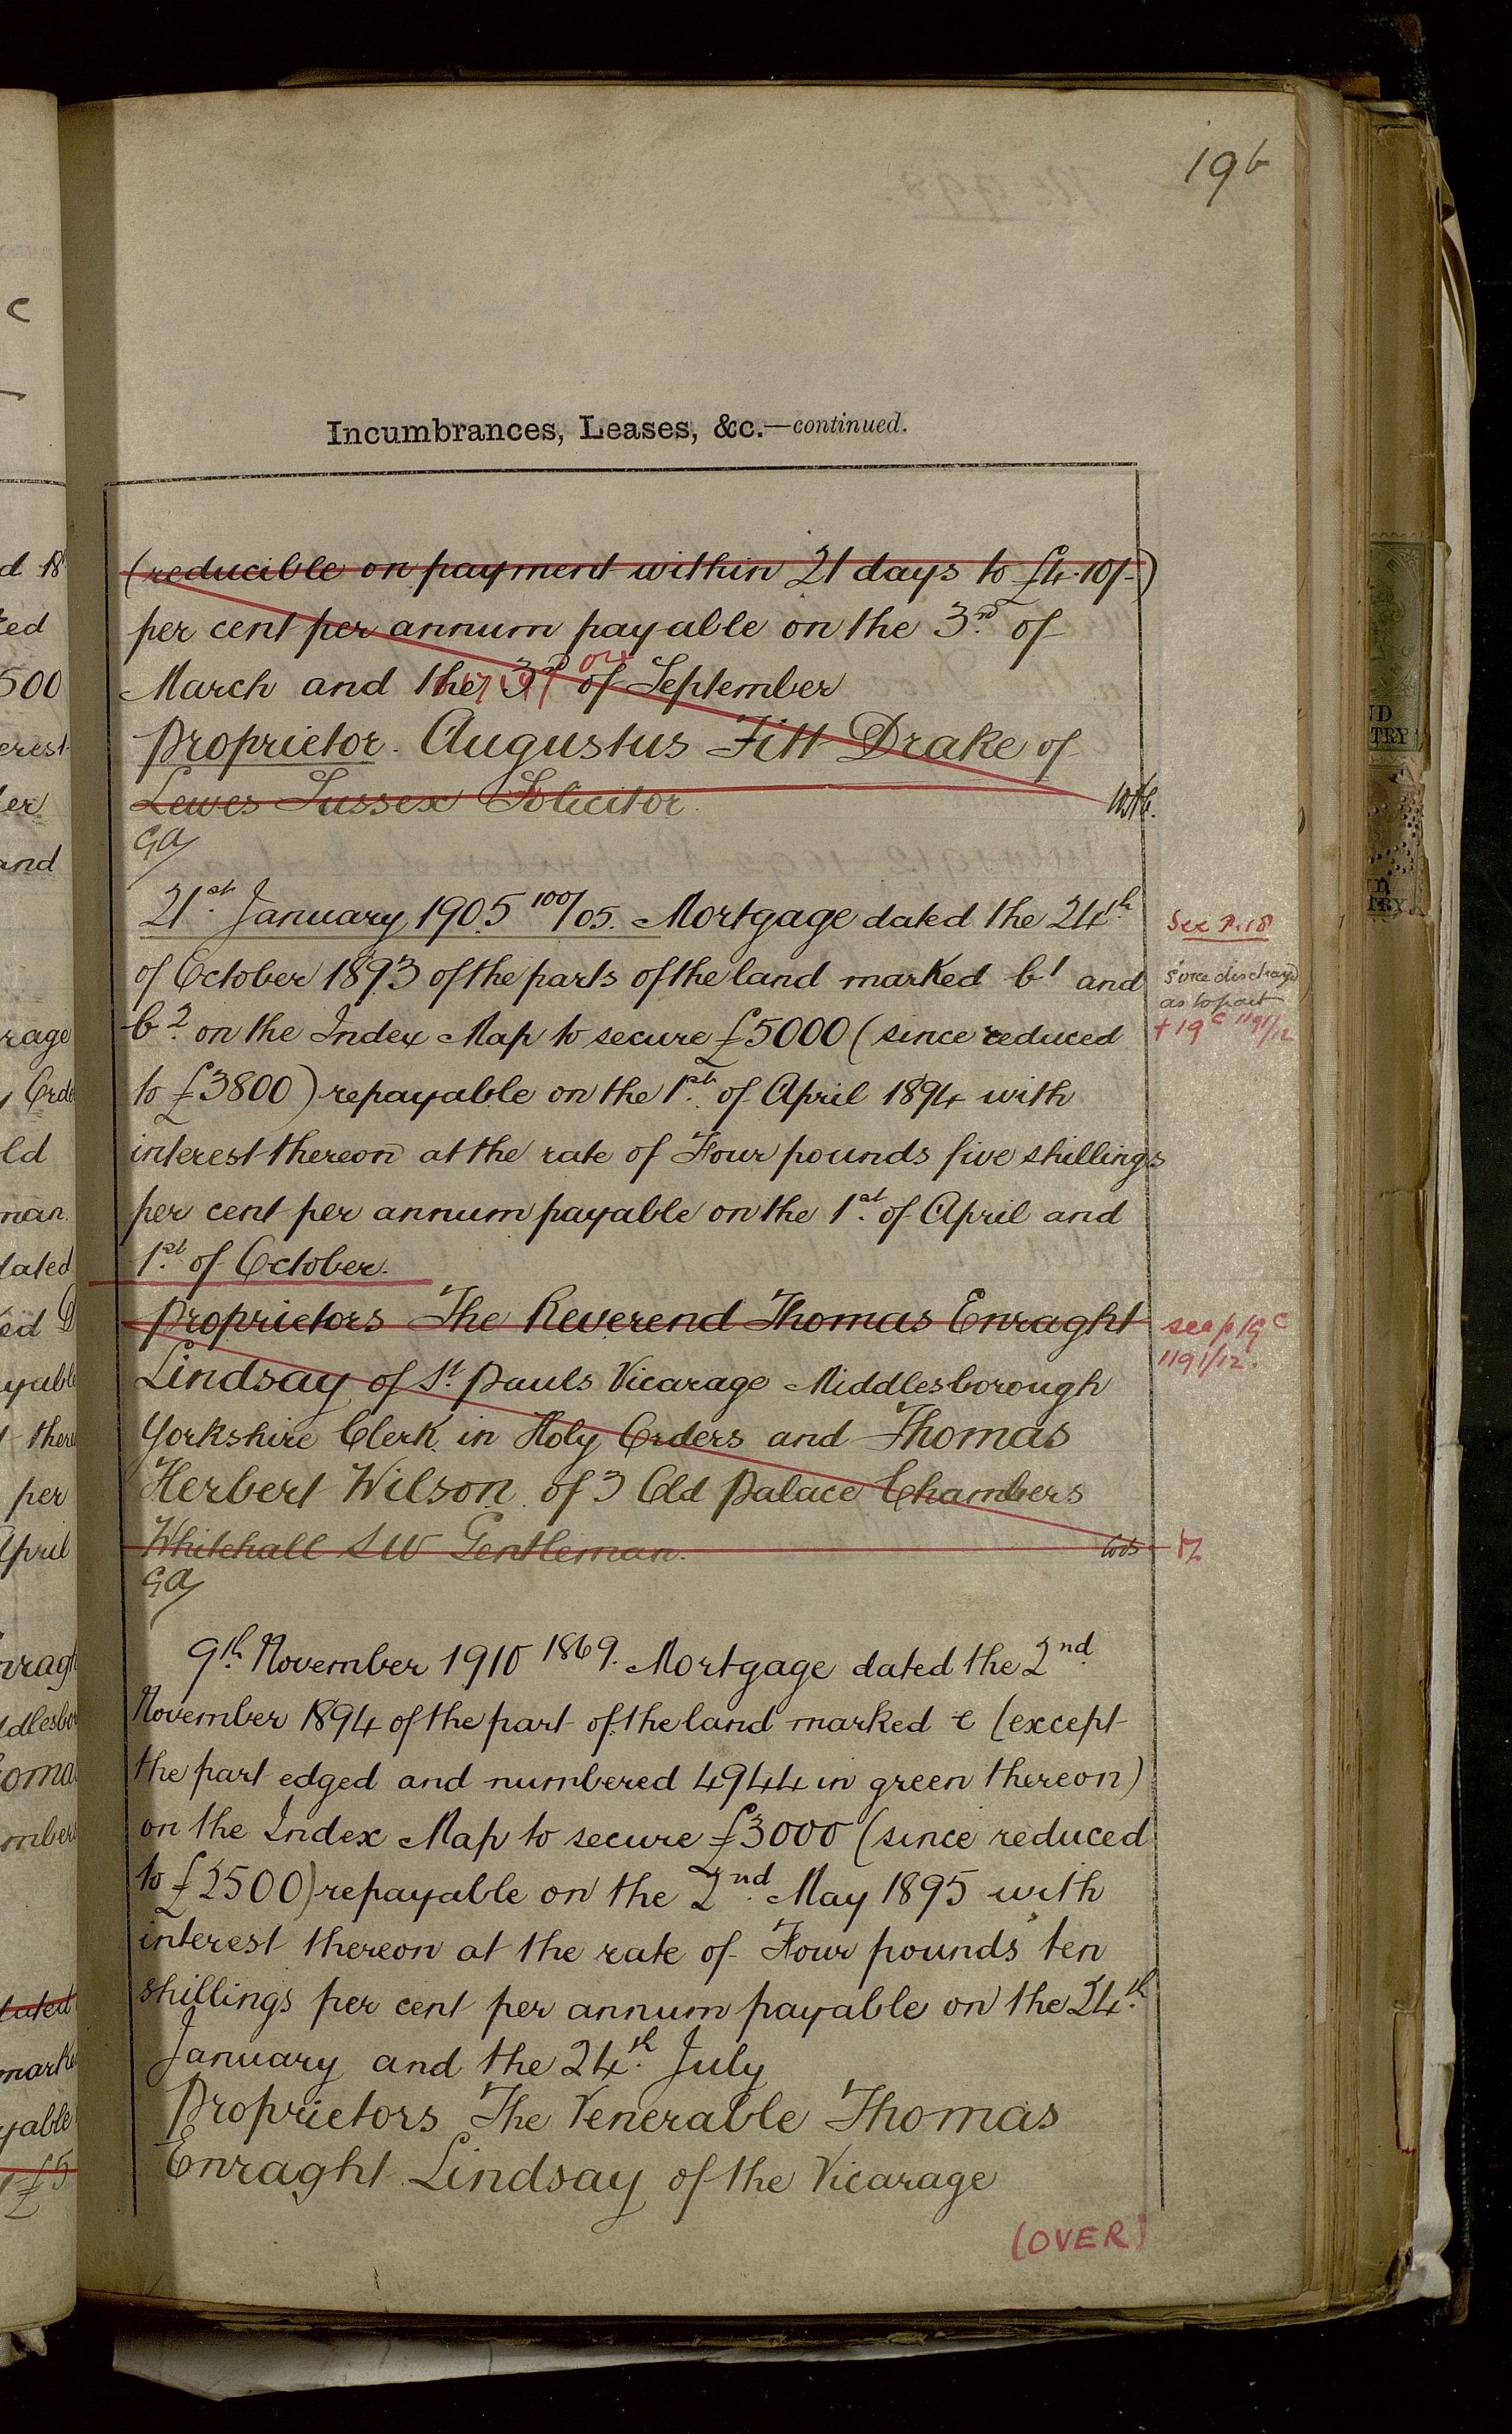 19b
Incumbrances, Leases, &c.—continued.
(reducible on payment within 21 days to £4.10/-)
per cent per annum payable on the 3rd of
March and the 3rd of September
Proprietor. Augustus Fitt Drake of
Lewes Sussex Solicitor.
GA
21st January 1905 100/05. Mortgage dated the 24th
See p. 18
of October 1893 of the parts of the land marked b1 and
b2 on the Index Map to secure £5000 (since reduced
as to part
+ 19c 1191/12
to £3800) repayable on the 1st of April 1894 with
interest thereon at the rate of Four pounds five shillings
per cent per annum payable on the 1st of April and
1st of October.
Proprietors The Reverend Thomas Enraght
see p 19c
1191/12.
Lindsay of St. Pauls Vicarage Middlesborough
Yorkshire Clerk in Holy Orders and Thomas
Herbert Wilson of 3 Old Palace Chambers
Whitehall SW Gentleman.
GA
9th November 1910 1869. Mortgage dated the 2nd
November 1894 of the part of the land marked c (except
the part edged and numbered 4944 in green thereon)
on the Index Map to secure £3000 (since reduced
to £2500) repayable on the 2nd May 1895 with
interest thereon at the rate of Four pounds ten
shillings per cent per annum payable on the 24th
January and the 24th July
Proprietors The Venerable Thomas
Enraght Lindsay of the Vicarage
(OVER)